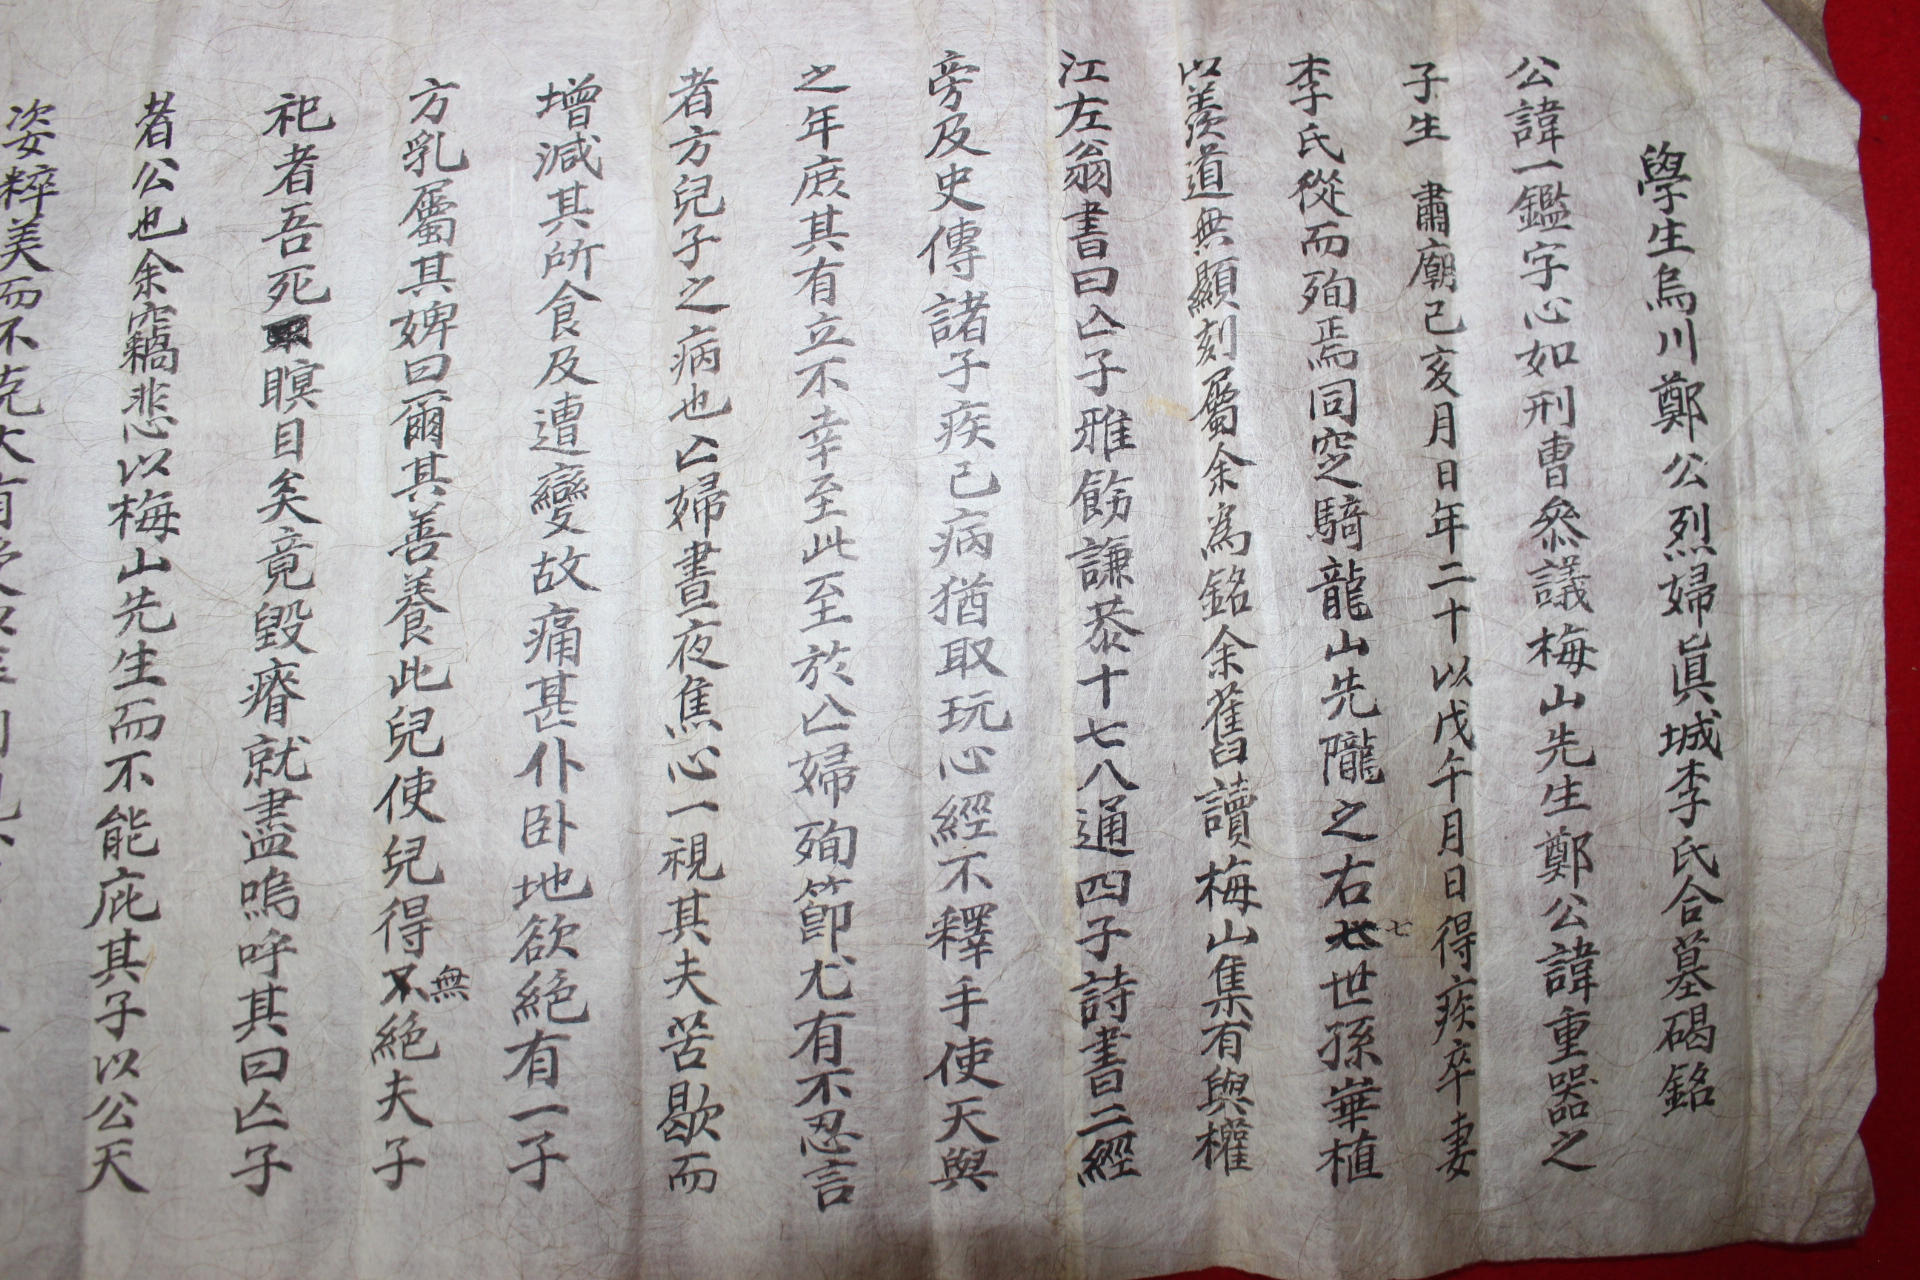 學生烏川鄭公烈婦眞城李氏合墓碣銘
公諱一鑑字心如刑曹參議梅山先生鄭公諱重器之
子生 肅廟己亥月日年二十以戊午月日得疾卒妻
李氏從而殉焉同窆騎龍山先隴之右七世孫華植
以羨道無顯刻屬余為銘余舊讀梅山集有與權
江左翁書曰亾子雅飭謙恭十七八通四子詩書二經
旁及史傳諸子疾已病猶取玩心經不釋手使天與
之年庶其有立不幸至此至於亾婦殉節尤有不忍言
者方兒子之病也亾婦晝夜焦心一視其夫苦歇而
增減其所食及遭變故痛甚仆卧地欲絕有一子
方乳屬其婢曰爾其善養此兒使兒得無絕夫子
祀者吾死瞑目矣竟毀瘠就盡嗚呼其曰亾子
者公也余竊悲以梅山先生而不能庇其子以公天
姿粹美而不克大有